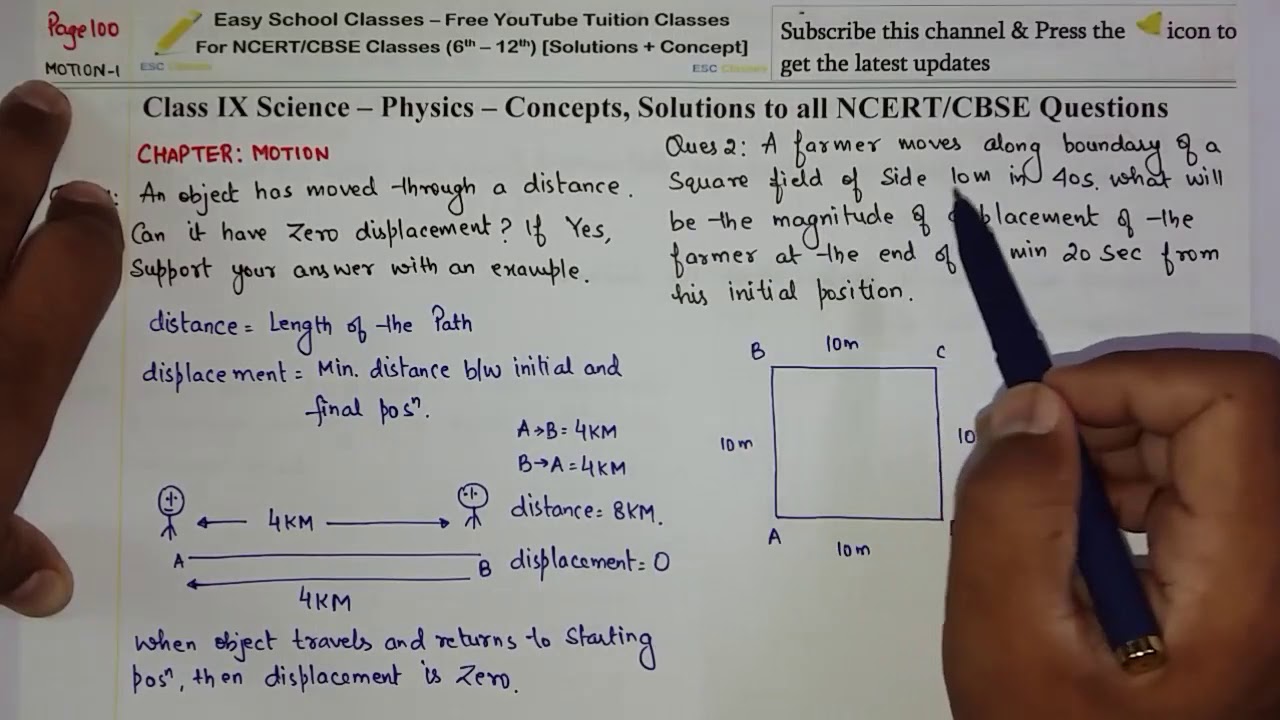 Page 100
MOTION-1
Easy School Classes – Free YouTube Tuition Classes
For NCERT/CBSE Classes (6th – 12th) [Solutions + Concept]
ESC Classes
ESC Classes
Subscribe this channel & Press the icon to
get the latest updates
Class IX Science – Physics – Concepts, Solutions to all NCERT/CBSE Questions
CHAPTER: MOTION
An object has moved through a distance.
Can it have Zero displacement? If Yes,
Support your answer with an example.
distance = Length of the Path
displacement = Min. distance b/w initial and
final posⁿ.
A→B = 4KM
B→A = 4KM
distance = 8KM.
displacement = 0
4KM
A
B
4KM
When object travels and returns to Starting
posⁿ, then displacement is Zero.
Ques 2: A farmer moves along boundary of a
Square field of Side 10m in 40s. what will
be the magnitude of of the
farmer at the end of min 20 Sec from
his initial position.
B
10m
C
10m
10
A
10m